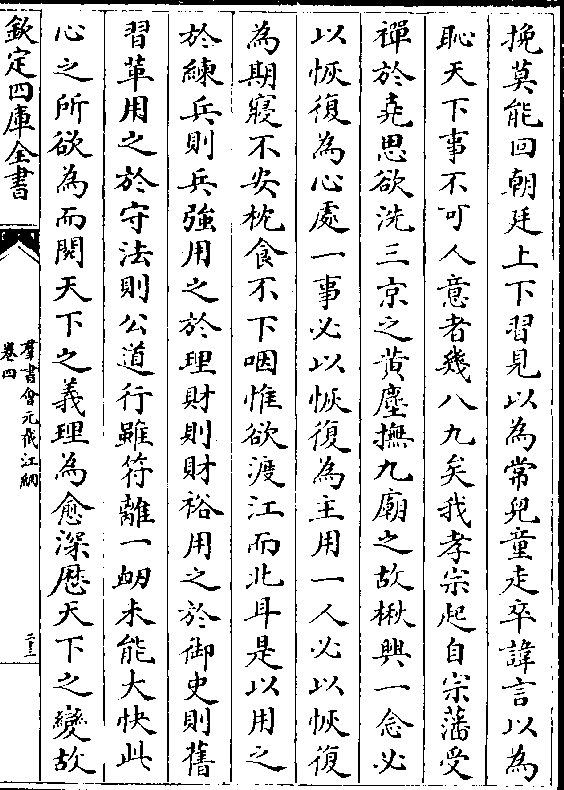 挽莫能回朝廷上下習見以為常兒童走卒諱言以為
恥天下事不可人意者幾八九矣我孝宗起自宗藩受
禪於堯思欲洗三京之黄塵撫九廟之故楸興一念必
以恢復為心處一事必以恢復為主用一人必以恢復
為期寢不安枕食不下咽惟欲渡江而北耳是以用之
於練兵則兵強用之於理財則財裕用之於御史則舊
習革用之於守法則公道行雖符離一衂未能大快此
心之所欲為而閱天下之義理為愈深歴天下之變故
欽定四庫全書
羣書會元截江網
卷四
二十三